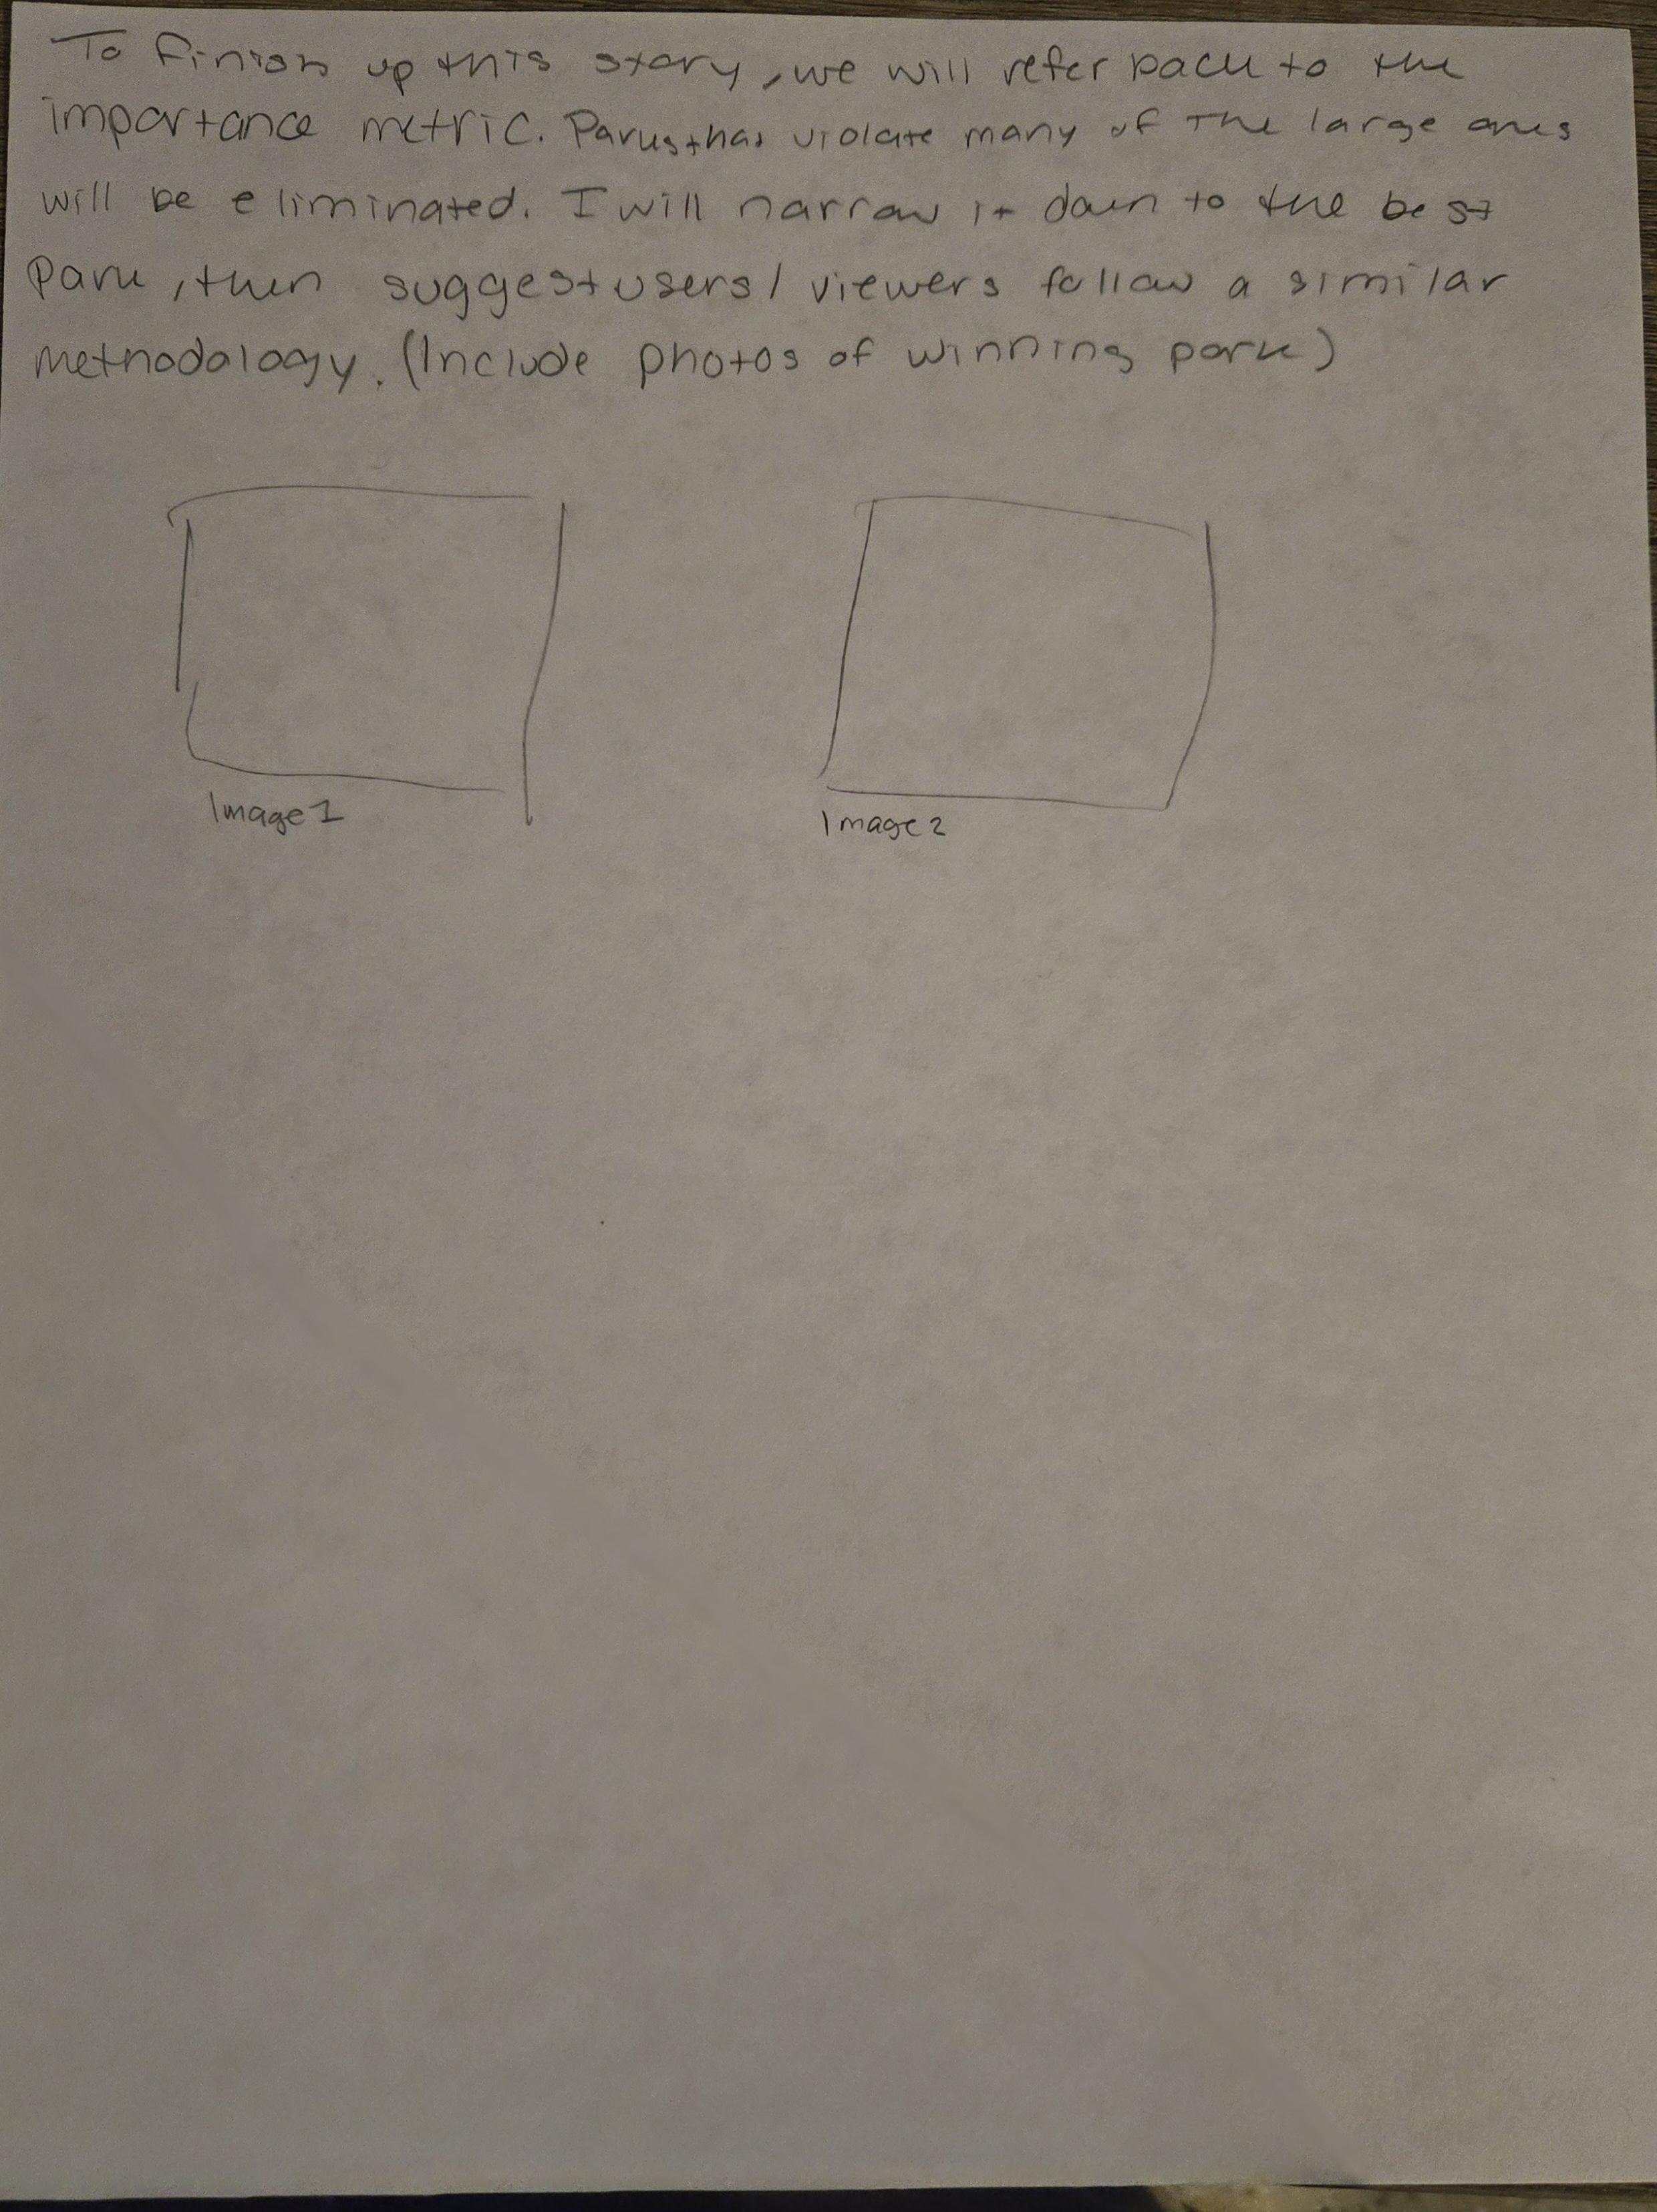 To finish up this story, we will refer back to the
importance metric. Parks that violate many of the large ones
will be eliminated. I will narrow it down to the best
Park, then suggest users/ viewers follow a similar
methodology. (Include photos of winning park)
Image 1
Image 2